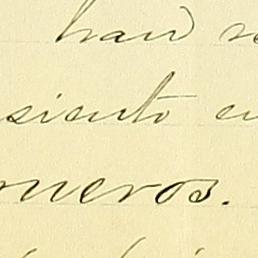 han
siento en
neros.